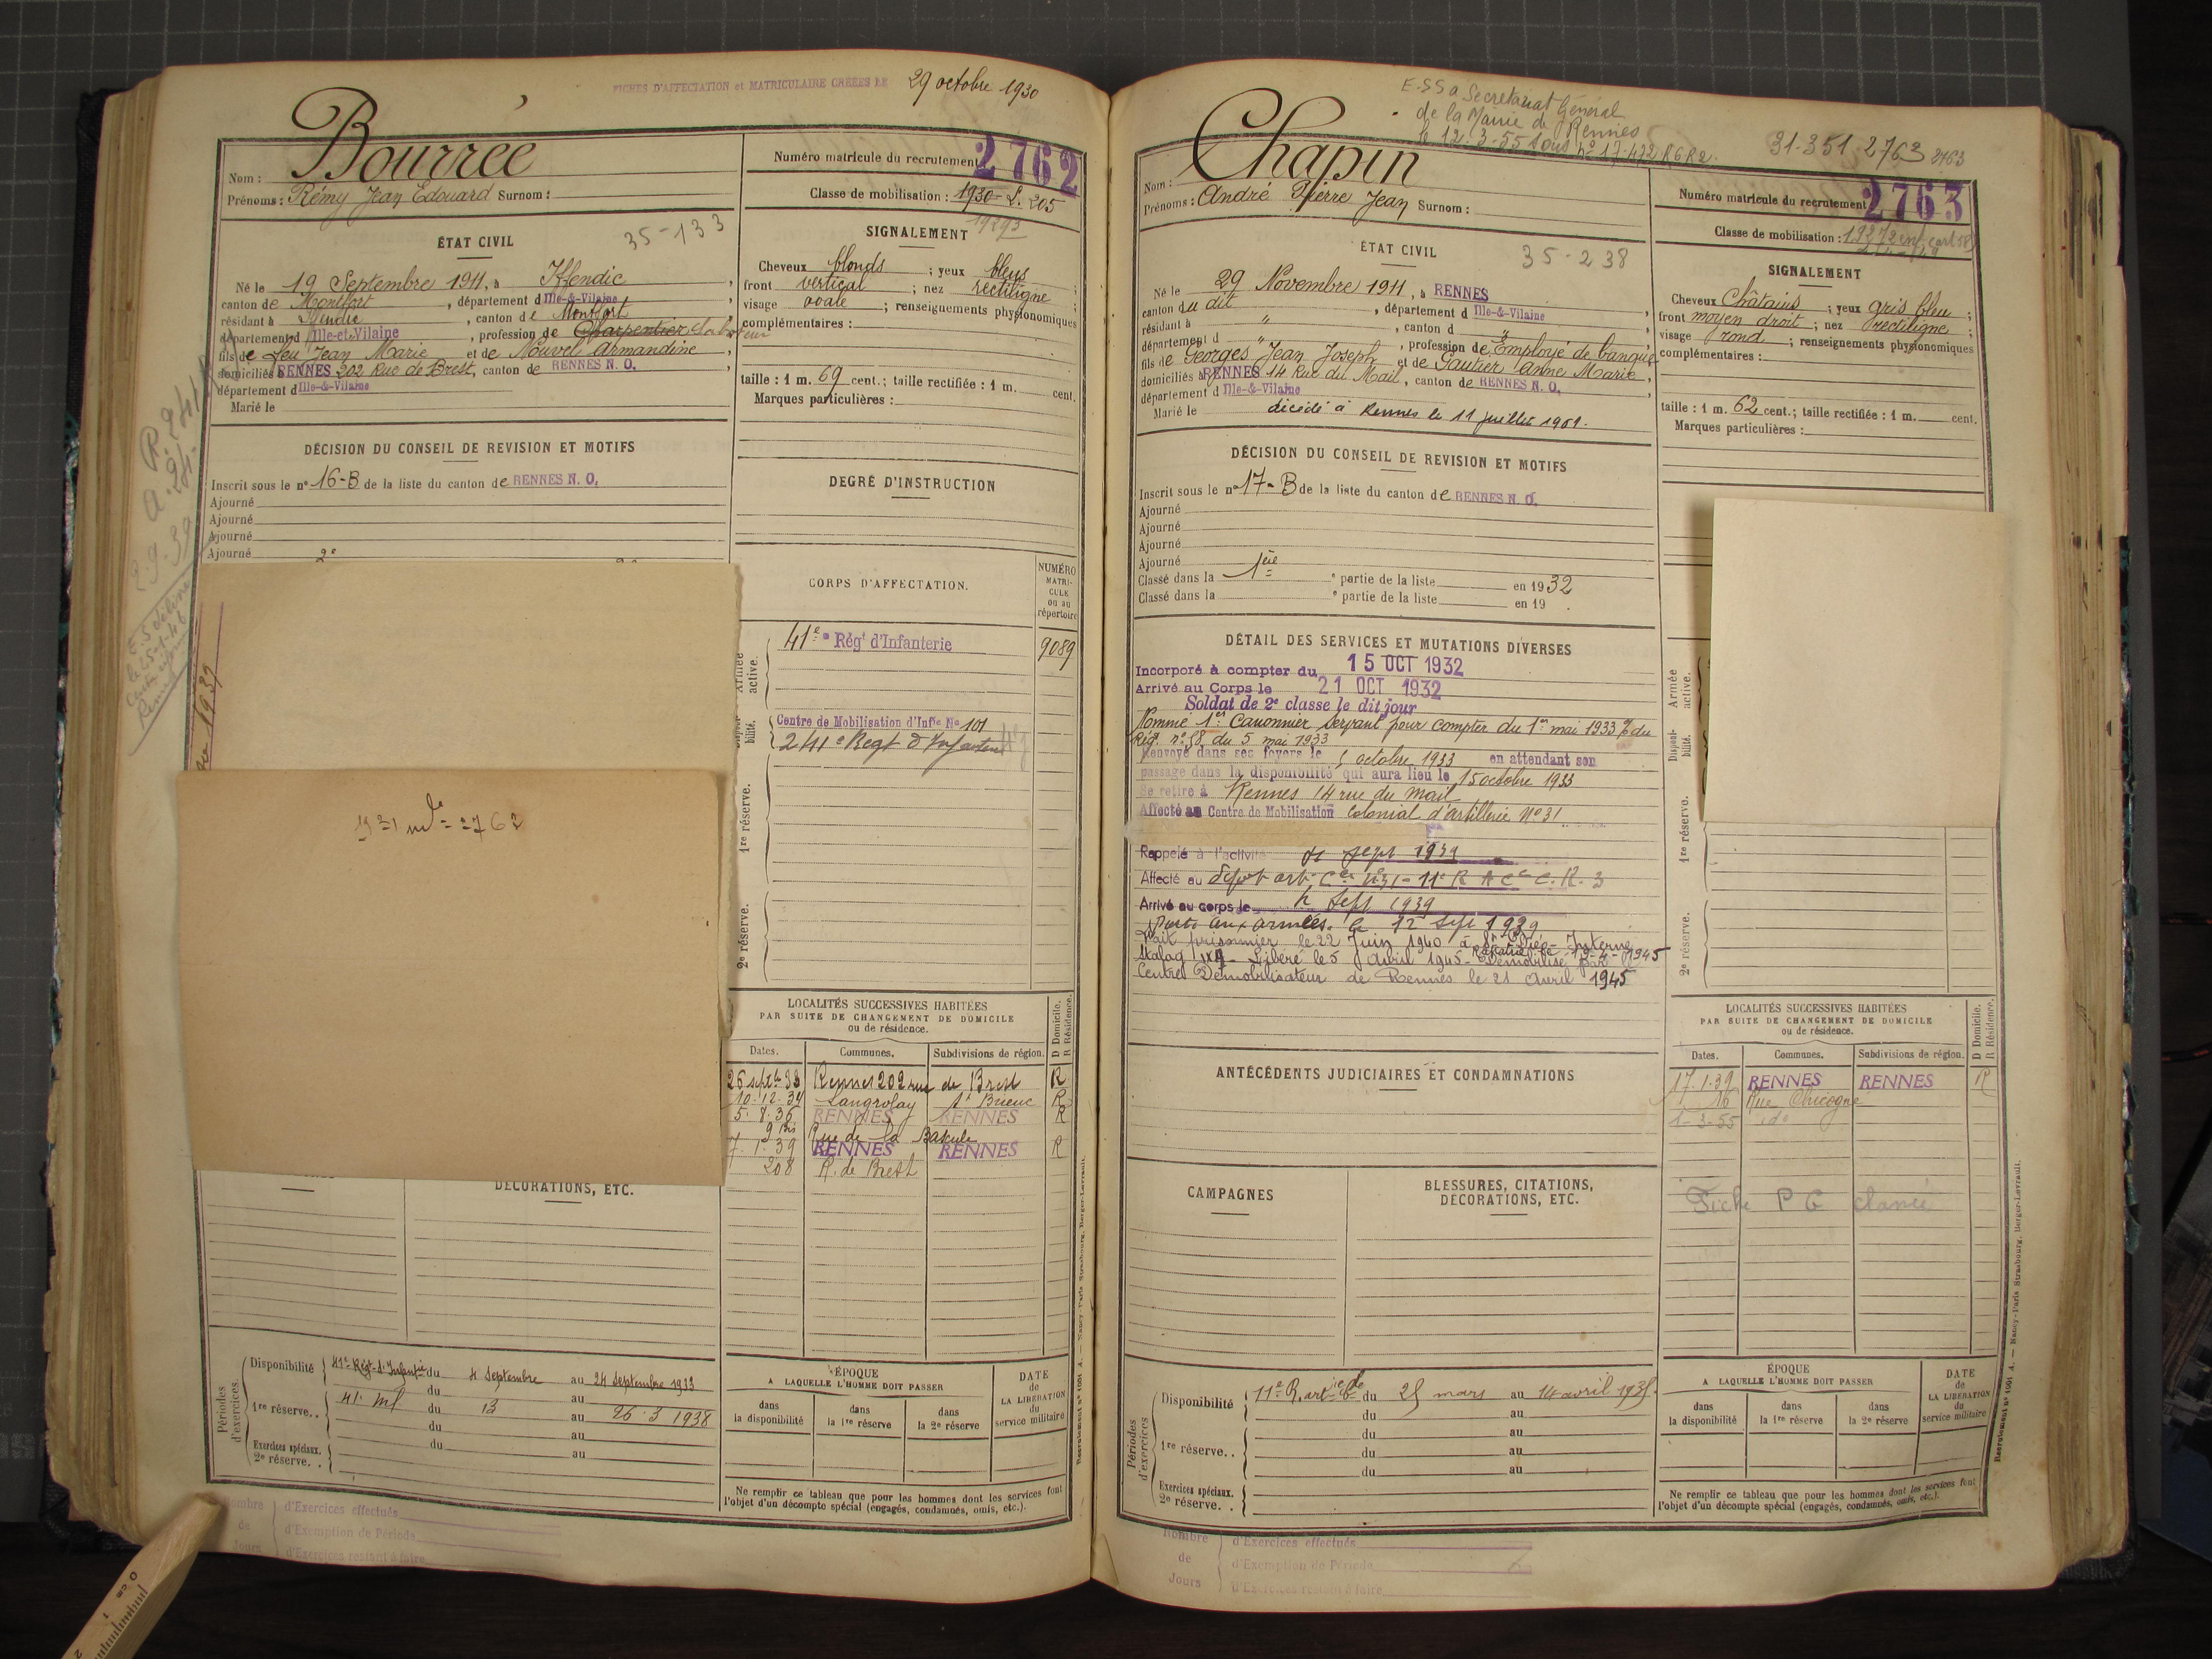 FICHES D'AFFECTATION et MATRICULAIRE CRÉÉES LE 29 octobre 1930
Nom : Bourrée
Prénoms : Rémy Jean Edouard Surnom :
Numéro matricule du recrutement 2762
Classe de mobilisation : 1930
ÉTAT CIVIL
35-133
Né le 19 Septembre 1911, à Iffendic,
canton de Montfort, département d Ille-&-Vilaine,
résidant à Iffendic, canton de Montfort,
département d Ille-et-Vilaine, profession de Charpentier
fils de feu Jean Marie et de Nouvel Armandine,
domiciliés RENNES 202 Rue de Brest, canton de RENNES N. O.
département d Ille-&-Vilaine
Marié le
SIGNALEMENT
Cheveux blonds ; yeux bleus ;
front vertical ; nez rectiligne ;
visage ovale ; renseignements physionomiques
complémentaires :
taille : 1 m. 69 cent.; taille rectifiée : 1 m. cent.
Marques particulières :
DÉCISION DU CONSEIL DE REVISION ET MOTIFS
Inscrit sous le n° 16-B de la liste du canton de RENNES N. O.
Ajourné
Ajourné
Ajourné
Ajourné
DEGRÉ D'INSTRUCTION
CORPS D'AFFECTATION.
NUMÉRO MATRICULE ou au répertoire
Armée active.
41e Régt d'Infanterie 9089
Disponibilité.
Centre de Mobilisation d'Infie No 101
241e Regt d'Infanterie
1re réserve.
2e réserve.
LOCALITÉS SUCCESSIVES HABITÉES
PAR SUITE DE CHANGEMENT DE DOMICILE
ou de résidence.
D Domicile.
R Résidence.
Dates. Communes. Subdivisions de région.
26 septbre 33 Rennes 202 rue de Brest R
10.12.34 Langrolay St Brieuc R
RENNES RENNES R
9 bis Rue de la Bascule
7.1.39 RENNES RENNES R
208 R. de Brest
DÉCORATIONS, ETC.
Périodes d'exercices.
Disponibilité 41e Régt d'Infantie du 4 Septembre au 24 Septembre 1933
du au
1re réserve. . du 13 au 26.3 1938
du au
Exercices spéciaux. du au
2e réserve. .
ÉPOQUE
A LAQUELLE L'HOMME DOIT PASSER
dans la disponibilité
dans la 1re réserve
dans la 2e réserve
DATE de LA LIBÉRATION du service militaire
Ne remplir ce tableau que pour les hommes dont les services font
l'objet d'un décompte spécial (engagés, condamnés, omis, etc.).
Nombre de Jours
d'Exercices effectués
d'Exemption de Période
d'Exercices restant à faire
E.SS a Secrétariat Général
de la Mairie de Rennes
31.351.2763 2763
Nom : Chapin
Prénoms : André Pierre Jean Surnom :
Numéro matricule du recrutement 2763
Classe de mobilisation :
ÉTAT CIVIL
35-238
Né le 29 Novembre 1911, à RENNES
canton du dit, département d Ille-&-Vilaine,
résidant à ", canton d "
département d ", profession de Employé de banque
fils de Georges Jean Joseph et de Gautier Anne Marie,
domiciliés à RENNES 14 Rue du Mail, canton de RENNES N. O.,
département d Ille-&-Vilaine
Marié le décédé à Rennes le 11 juillet
SIGNALEMENT
Cheveux Châtains ; yeux gris bleu ;
front moyen droit ; nez rectiligne ;
visage rond ; renseignements physionomiques
complémentaires :
taille : 1 m. 62 cent.; taille rectifiée : 1 m. cent.
Marques particulières :
DÉCISION DU CONSEIL DE REVISION ET MOTIFS
Inscrit sous le n° 17-B de la liste du canton de RENNES N. O.
Ajourné
Ajourné
Ajourné
Ajourné
Classé dans la 1ère e partie de la liste en 1932
Classé dans la e partie de la liste en 19 .
DÉTAIL DES SERVICES ET MUTATIONS DIVERSES
Incorporé à compter du 15 OCT 1932
Arrivé au Corps le 21 OCT 1932
Soldat de 2e classe le dit jour
Nommé 1er Canonnier Servant pour compter du 1er mai 1933 du
Rég. n° 58 du 5 mai 1933
Renvoyé dans ses foyers le octobre 1933 en attendant son
passage dans la disponibilité qui aura lieu le 15 octobre 1933
Se retire à Rennes 14 rue du Mail
Affecté au Centre de Mobilisation Colonial d'artillerie N° 31
Rappelé à l'activité sept 1939
Affecté au dépôt art
Arrivé au corps le sept 1939
aux armées le 12 sept 1939
Fait prisonnier le 22 Juin 1940 à St Dié - Interné
Stalag IXA - Libéré le 5 Avril 1945 - Rapatrié le 19-4-1945 Démobilisé par le
Centre Démobilisateur de Rennes le 21 Avril 1945
ANTÉCÉDENTS JUDICIAIRES ET CONDAMNATIONS
CAMPAGNES
BLESSURES, CITATIONS,
DÉCORATIONS, ETC.
Armée active.
Disponibilité.
1re réserve.
2e réserve.
LOCALITÉS SUCCESSIVES HABITÉES
PAR SUITE DE CHANGEMENT DE DOMICILE
ou de résidence.
D Domicile.
R Résidence.
Dates. Communes. Subdivisions de région.
17.1.39 RENNES RENNES R
16 Rue Chicogné
1-3-55 id°
Fiche P G classée
Périodes d'exercices
Disponibilité du 25 mars au 14 avril
du au
du au
1re réserve. . du au
du au
Exercices spéciaux.
2e réserve. .
ÉPOQUE
A LAQUELLE L'HOMME DOIT PASSER
dans la disponibilité
dans la 1re réserve
dans la 2e réserve
DATE de LA LIBÉRATION du service militaire
Ne remplir ce tableau que pour les hommes dont les services font
l'objet d'un décompte spécial (engagés, condamnés, omis, etc.).
Nombre de Jours
d'Exercices effectués
d'Exemption de Période
d'Exercices restant à faire